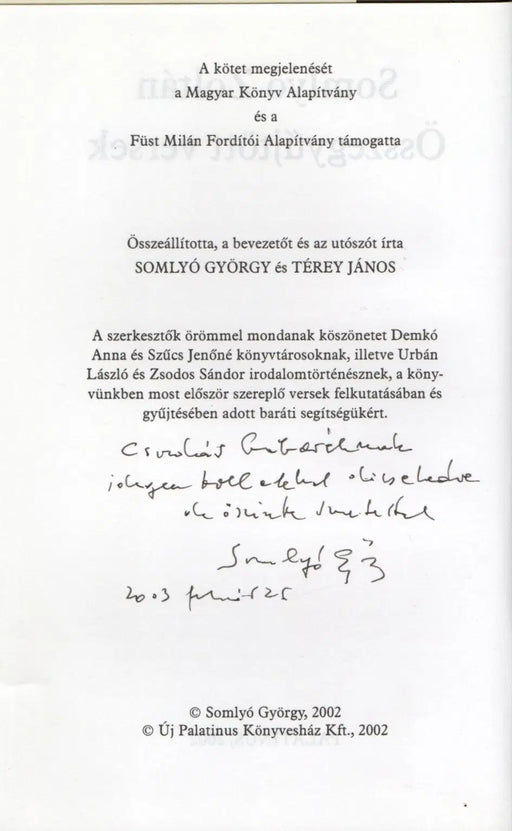 A kötet megjelenését
a Magyar Könyv Alapítvány
és a
Füst Milán Fordítói Alapítvány támogatta
Összeállította, a bevezetőt és az utószót írta
SOMLYÓ GYÖRGY és TÉREY JÁNOS
A szerkesztők örömmel mondanak köszönetet Demkó
Anna és Szűcs Jenőné könyvtárosoknak, illetve Urbán
László és Zsodos Sándor irodalomtörténésznek, a köny-
vünkben most először szereplő versek felkutatásában és
gyűjtésében adott baráti segítségükért.
idegen tollakkal dicsekedve
de őszinte
Somlyó Gy
2003 25
© Somlyó György, 2002
© Új Palatinus Könyvesház Kft., 2002